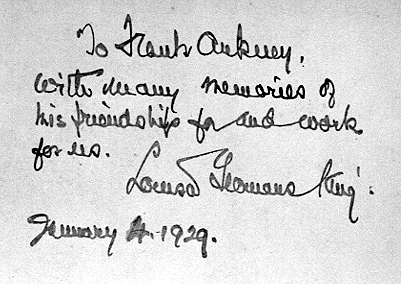 To Frank Ankney,
with many memories of
his friendship for and work
for us.
Louisa Yeomans King.
January 4. 1929.